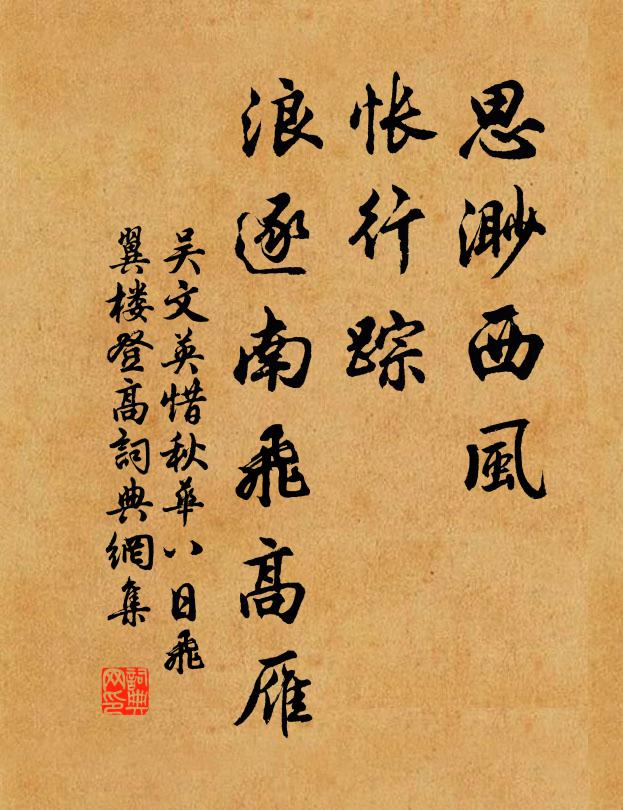 思渺西風
悵行踪
浪逐南飛高雁
吴文英惜秋華八日飛
翼楼登高詞典網集
詞典
网印